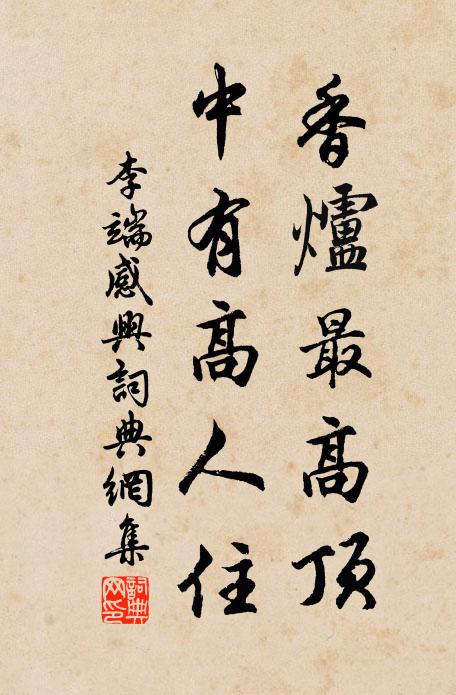 香爐最高頂
中有高人住
李端感興詞典網集
詞典網印